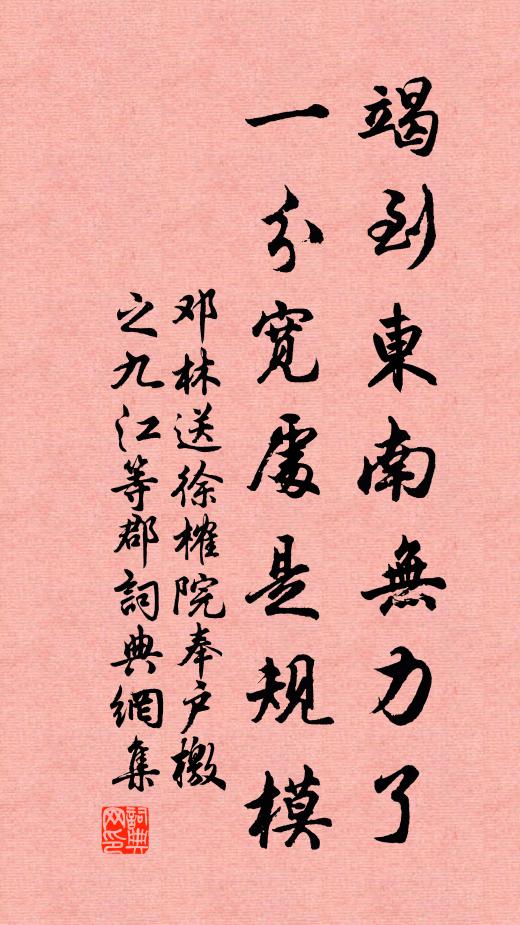 竭到東南無力了
一分寬處是規模
邓林送徐榷院奉户檄
之九江等郡詞典網集
詞典
网印